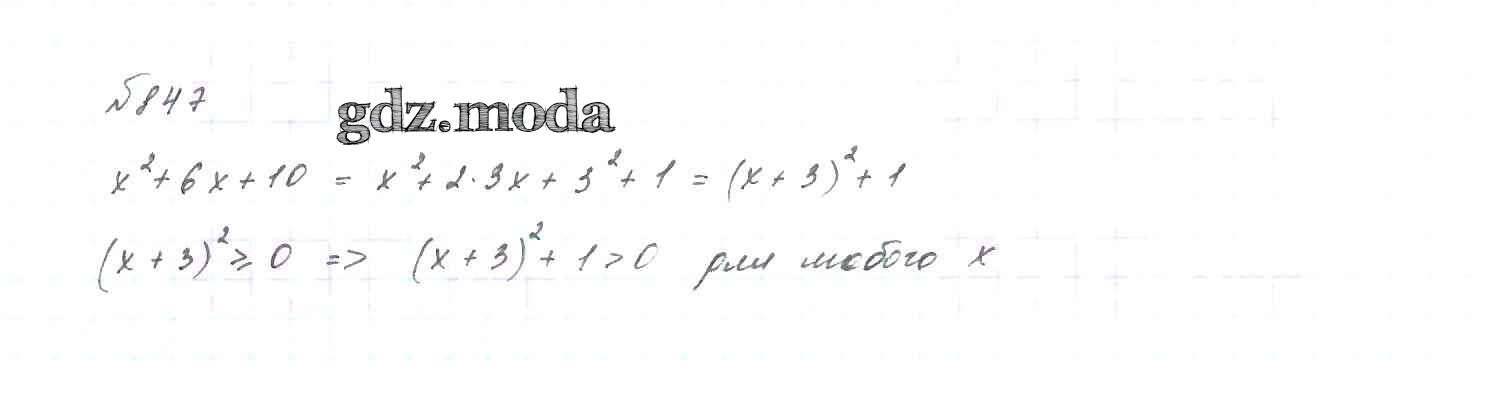 №847
gdz.moda
x²+6x+10 = x²+2·3x+3²+1 = (x+3)²+1
(x+3)²⩾0 => (x+3)²+1>0 для любого x